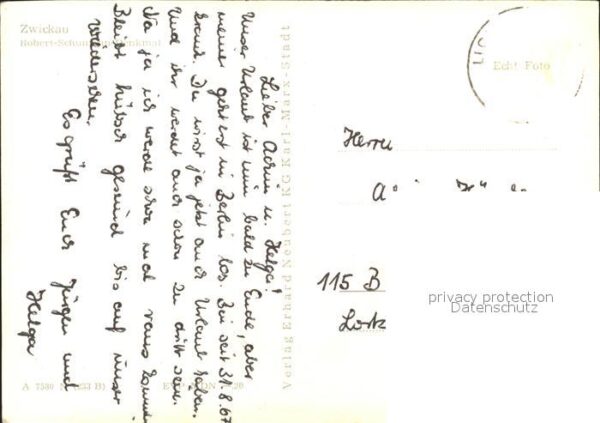 Zwickau
Robert-Schumann-Denkmal
Lieber Achim u. Helga!
Unser Urlaub ist nun bald zu Ende, aber
meiner geht erst in Berlin los. Bin seit 31.8.67
krank. Du wirst ja jetzt auch Urlaub haben.
Und ihr werdet auch schon zu dritt sein.
Na ja ich werde schon mal raus kommen
Bleibt hübsch gesund bis auf unser
Wiedersehen.
Es grüßt Euch Jürgen und
Helga
Verlag Erhard Neubert KG Karl-Marx-Stadt
Echt Foto
Herrn
A
115 B
privacy protection
Datenschutz
A 7580